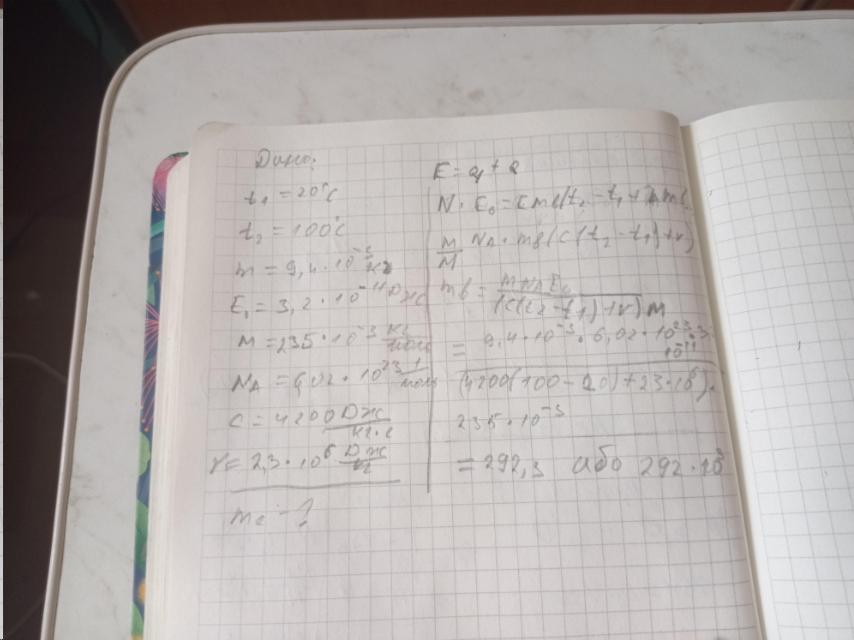 Дано:
t₁ = 20°C
t₂ = 100°C
m = 9,4 · 10⁻³ кг
E₁ = 3,2 · 10⁻¹¹ Дж
M = 235 · 10⁻³ кг/моль
N_A = 6,02 · 10²³ 1/моль
c = 4200 Дж/кг·c
r = 2,3 · 10⁶ Дж/кг
- ?
E = Q₁ + Q
N · E₀ = cmв(t₂ - t₁ +
m/M N_A · mв(c(t₂ - t₁) + r)
mв = m N_A E₀ / (c(t₂ - t₁) + r) M
= 9,4 · 10⁻³ · 6,02 · 10²³ · 3
10⁻¹¹
(4200(100 - 20) + 23 · 10⁶) ·
235 · 10⁻³
= 292,3 або 292 · 10³